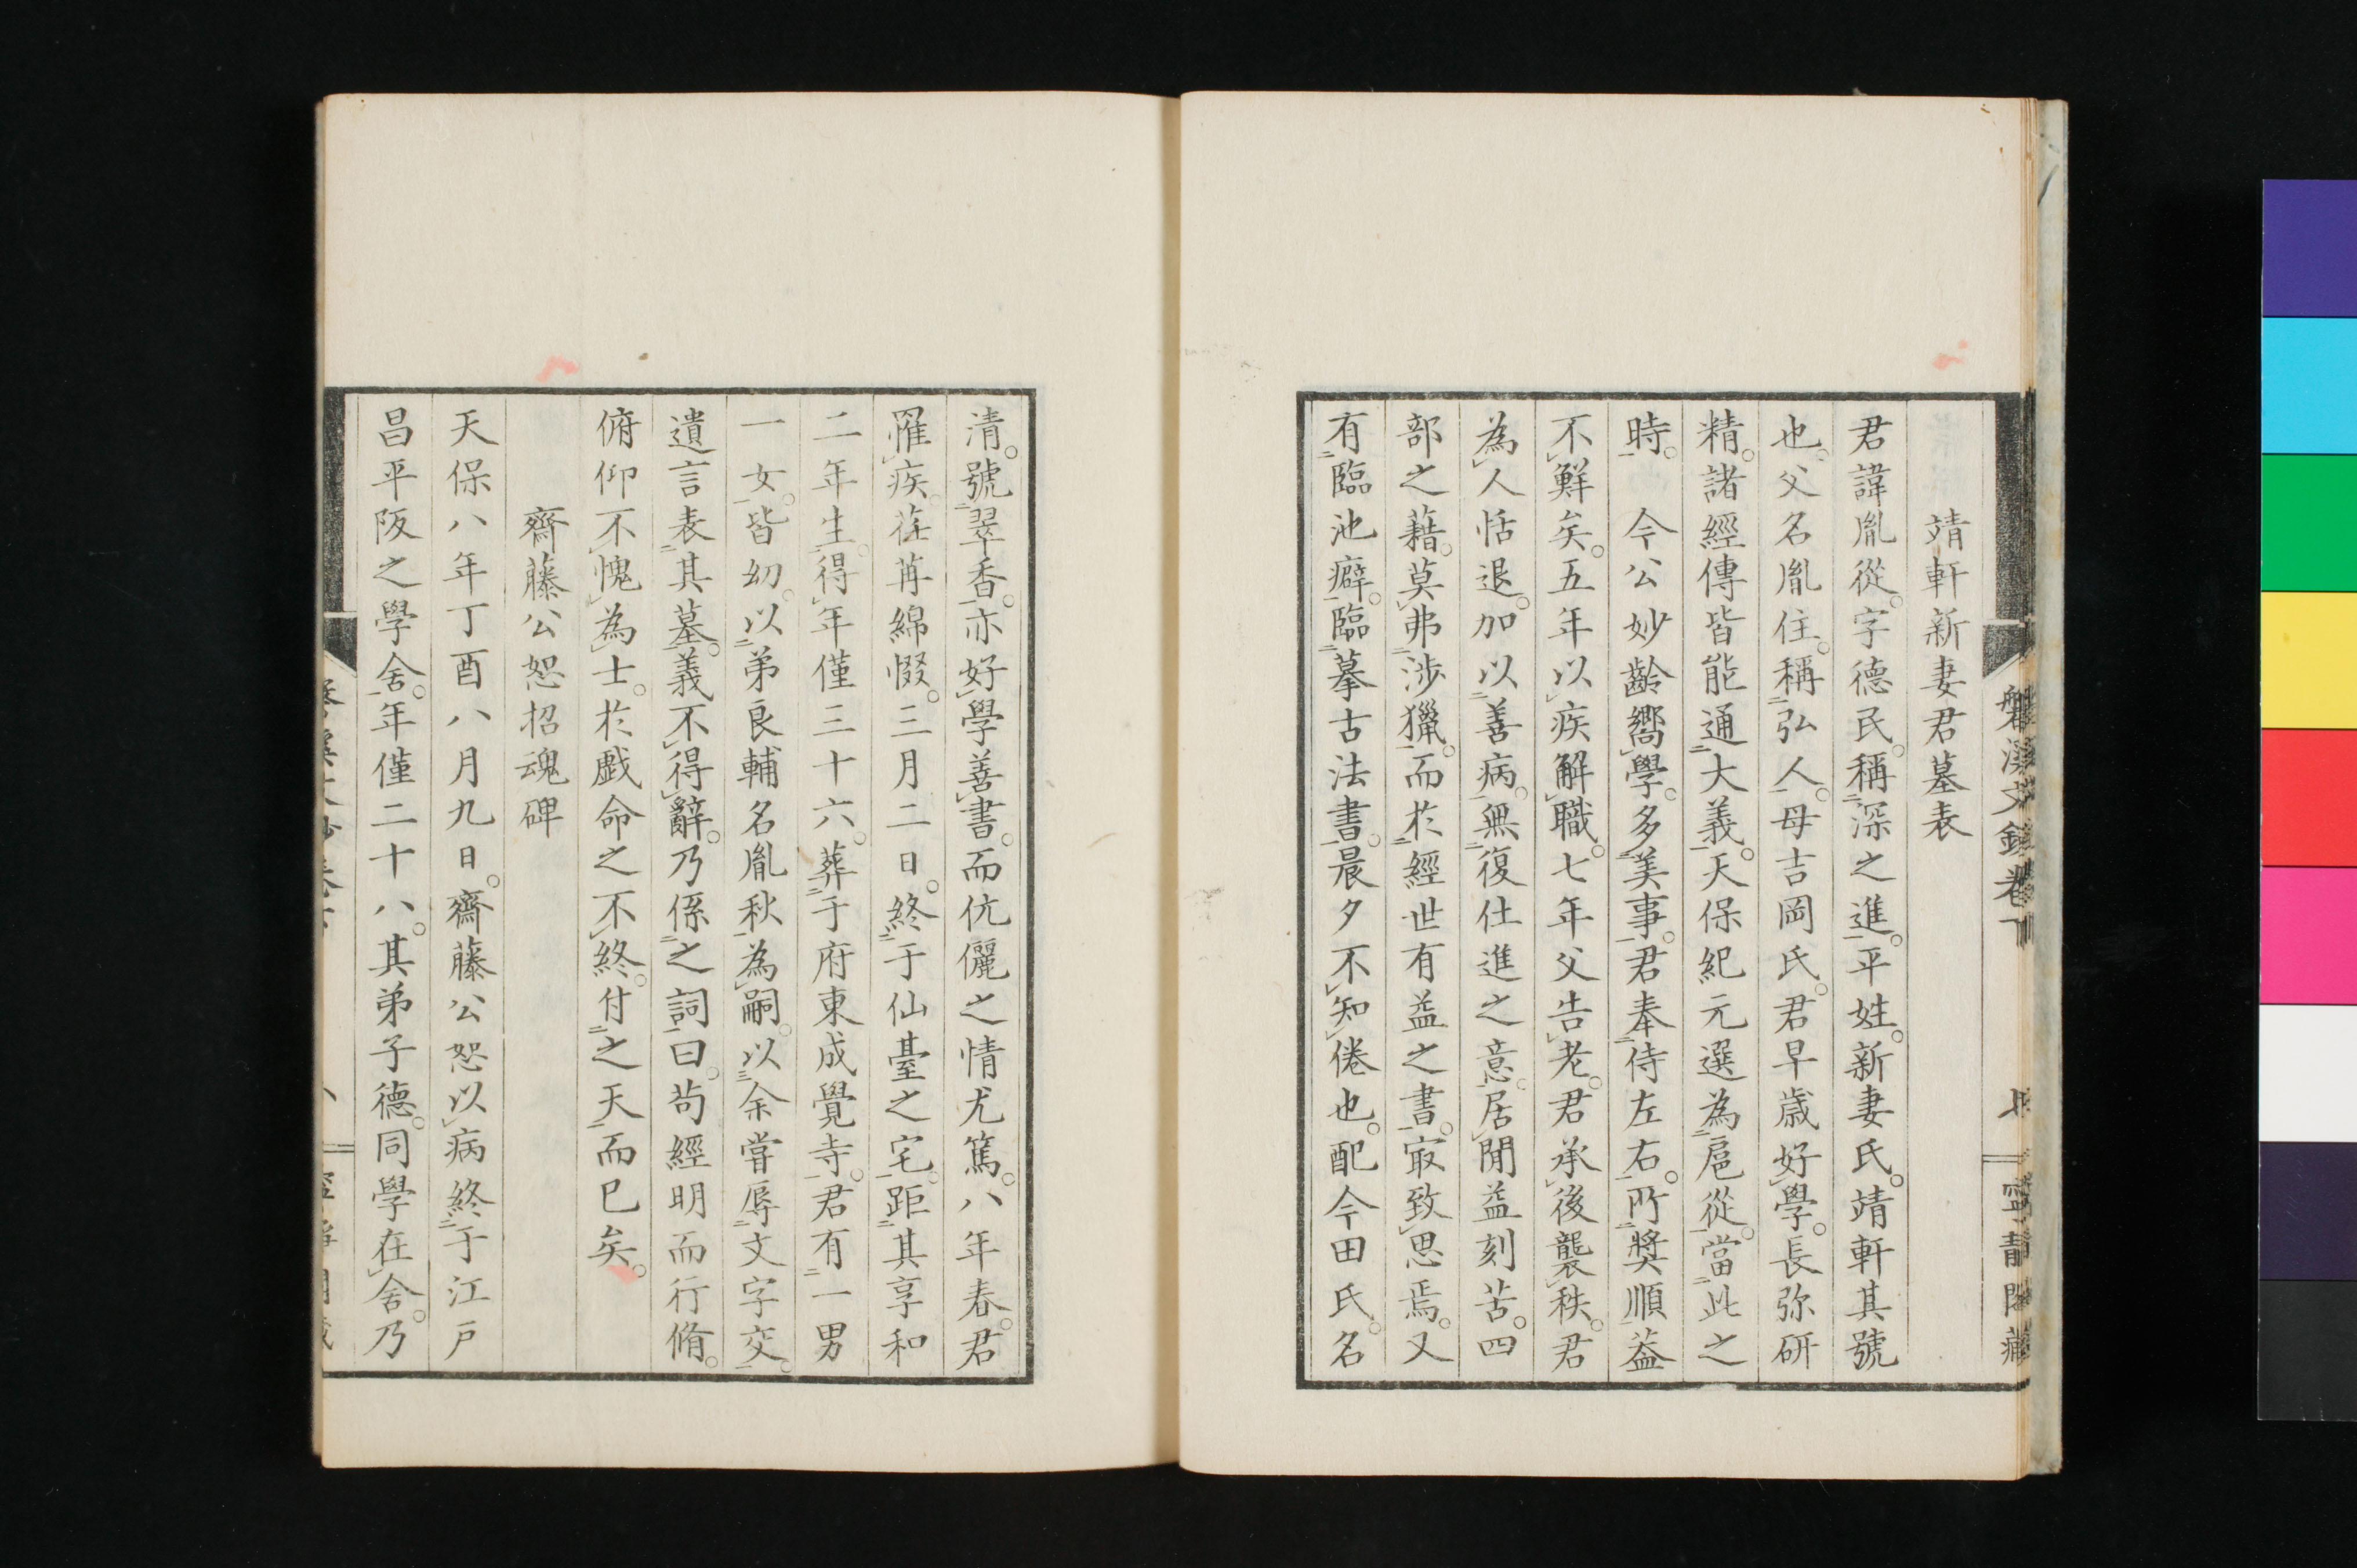 靖軒新妻君墓表
君諱胤從。字德民。稱深之進。平姓。新妻氏。靖軒其號
也。父名胤住。稱弘人。母吉岡氏。君早歳好學。長弥研
精。諸經傳皆能通大義。天保紀元選為扈從。當此之
時。 今公妙齡嚮學。多美事。君奉侍左右。所獎順葢
不鮮矣。五年以疾解職。七年父告老。君承後襲秩。君
為人恬退。加以善病。無復仕進之意。居閒益刻苦。四
部之藉。莫弗涉獵。而於經世有益之書。㝡致思焉。又
有臨池癖。臨摹古法書。晨夕不知倦也。配今田氏。名
清。號翠香。亦好學善書。而伉儷之情尤篤。八年春。君
罹疾。荏苒綿惙。三月二日。終于仙臺之宅。距其享和
二年生。得年僅三十六。葬于府東成覺寺。君有一男
一女。皆幼。以弟良輔名胤秋為嗣。以余嘗辱文字交。
遺言表其墓。義不得辭。乃係之詞曰。茍經明而行脩。
俯仰不愧為士。於戲命之不終。付之天而已矣。
齋藤公恕招魂碑
天保八年丁酉八月九日。齋藤公恕以病終于江戸
昌平阪之學舍。年僅二十八。其弟子德。同學在舍。乃